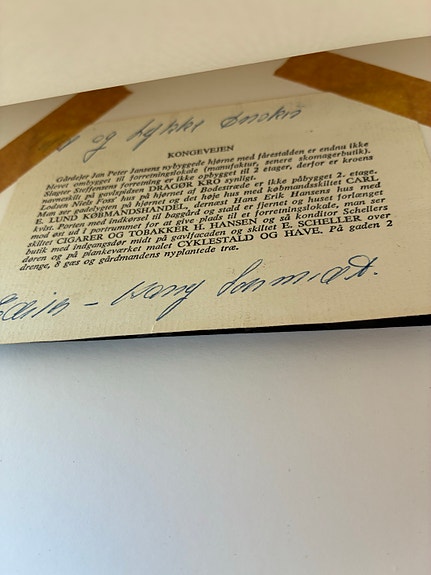 KONGEVEJEN
Gårdejer Jan Peter Jansens nybyggede hjørne med fårestalden er endnu ikke
blevet ombygget til forretningslokale (manufaktur, senere skomagerbutik).
Slagter Steffensens forretning er ikke opbygget til 2 etager, derfor er kroens
navneskilt på gavlspidsen DRAGØR KRO synligt.
Lodsen Niels Foss' hus på hjørnet af Bodestræde er ikke påbygget 2. etage.
Man ser gadebyen på hjørnet og det høje hus med købmandsskiltet CARL
E. LUND KØBMANDSHANDEL, dernæst Hans Erik Hansens hus med
kvist. Porten med indkørsel til baggård og stald er fjernet og huset forlænget
mod øst ud i portrummet for at give plads til et forretningslokale, man ser
skiltet CIGARER OG TOBAKKER H. HANSEN og så konditor Schellers
butik med indgangsdør midt på gavlfacaden og skiltet E. SCHELLER over
døren og på plankeværket malet CYKLESTALD OG HAVE. På gaden 2
drenge, 8 gæs og gårdmandens nyplantede træ.